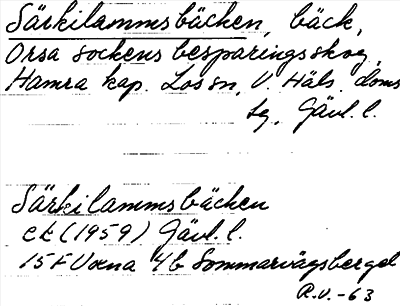 Särkilammsbäcken, bäck,
Orsa sockens besparingsskog,
Hamra kap. Los sn, V. Häls. doms
sg, Gävl. l.
Särkilammsbäcken
ek (1959) Gävl. l.
15 F Voxna 4b Sommarvägsberget
R.V. -63